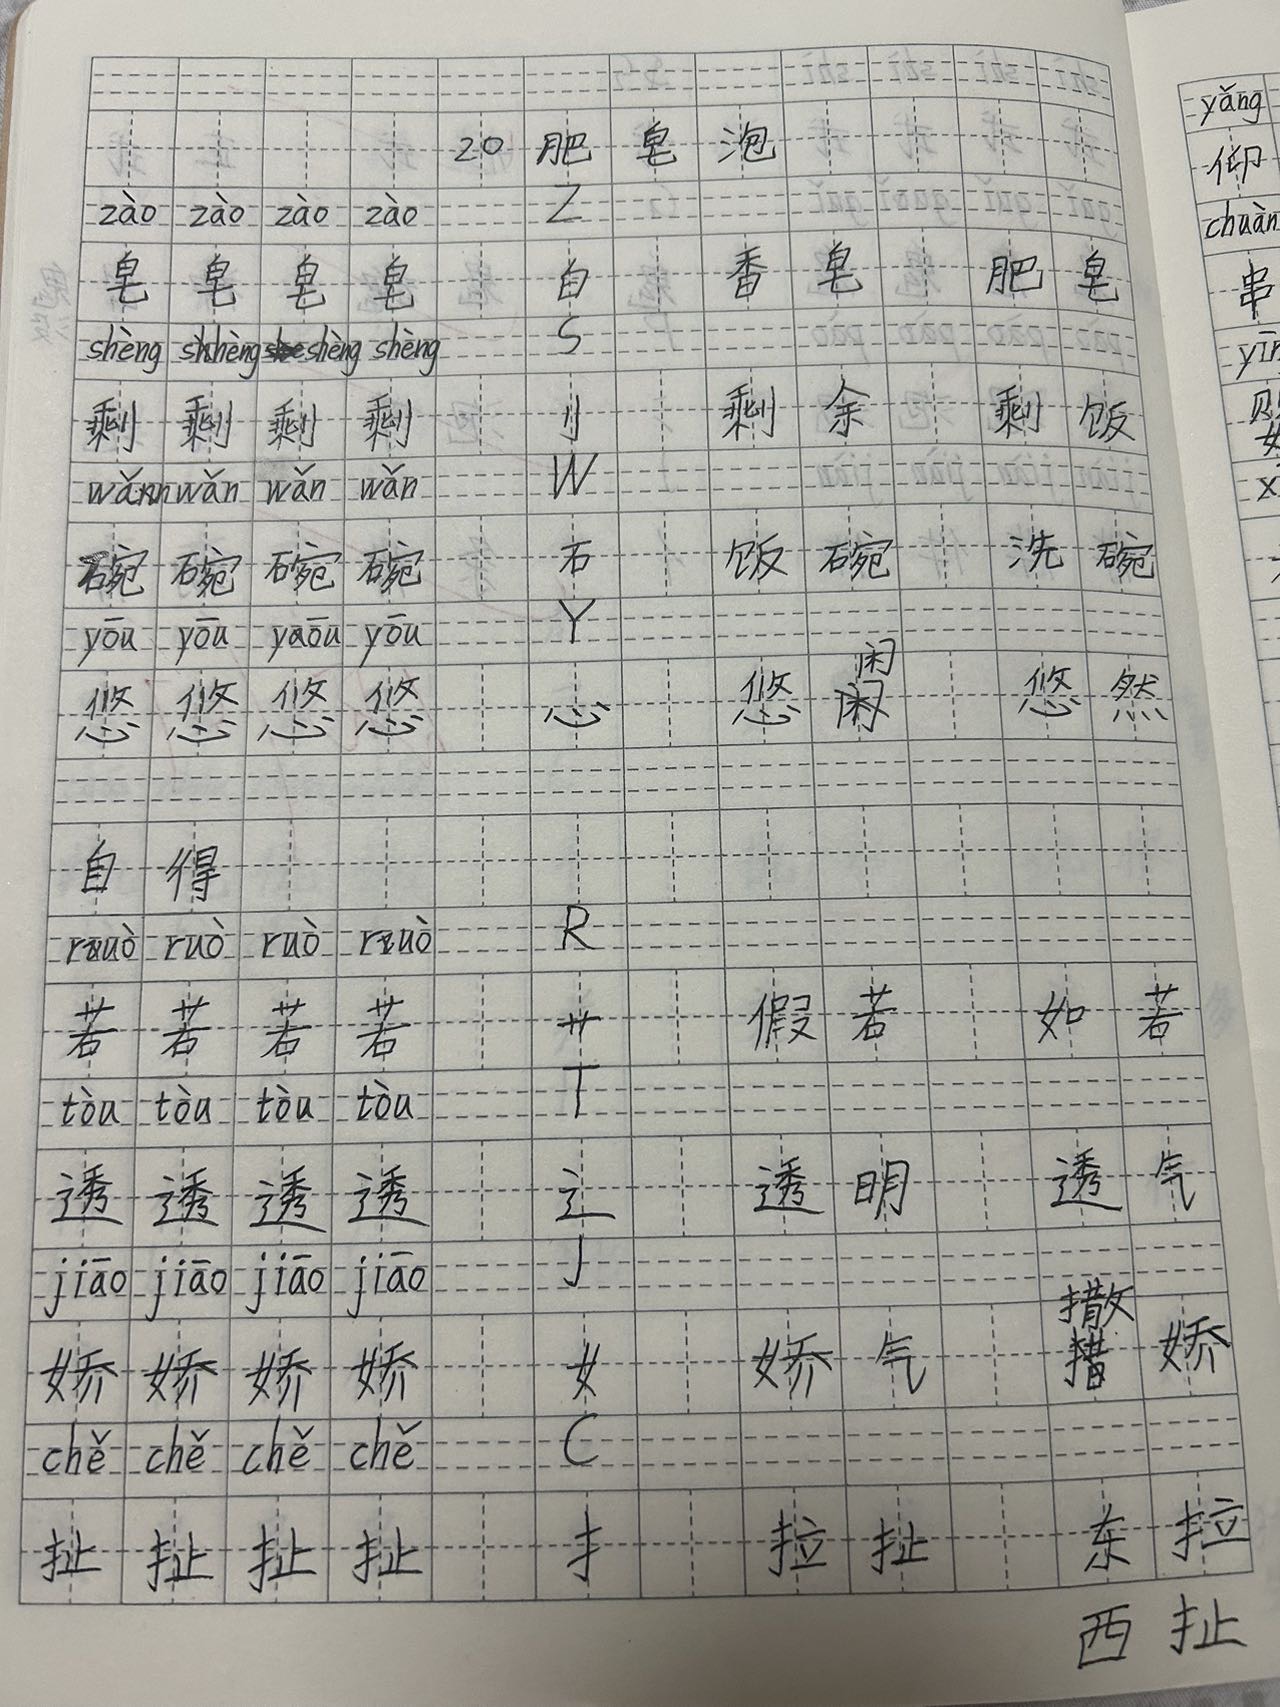 20 肥 皂 泡
zào zào zào zào Z
皂 皂 皂 皂 白 香 皂 肥 皂
shèng shèng shèng shèng S
剩 剩 剩 剩 刂 剩 余 剩 饭
wǎn wǎn wǎn wǎn W
碗 碗 碗 碗 石 饭 碗 洗 碗
yōu yōu yōu yōu Y
闲
悠 悠 悠 悠 心 悠 闲 悠 然
自 得
ruò ruò ruò ruò R
若 若 若 若 艹 假 若 如 若
tòu tòu tòu tòu T
透 透 透 透 辶 透 明 透 气
jiāo jiāo jiāo jiāo J
撒
娇 娇 娇 娇 女 娇 气 娇
chě chě chě chě C
扯 扯 扯 扯 扌 拉 扯 东 拉
西 扯
yǎng
仰
chuàn
串